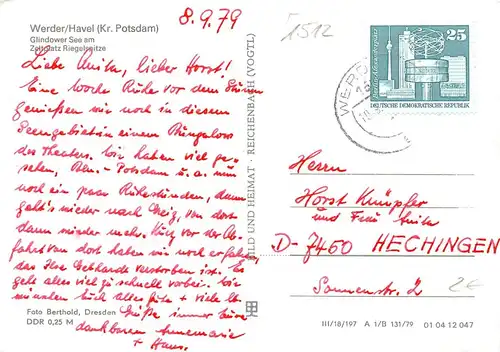 8.9.79
Werder/Havel (Kr. Potsdam)
Glindower See am
Zeltplatz Riegelspitze
Liebe Anita, lieber Horst!
Eine Woche Ruhe vor dem Sturm
genießen wir noch in diesem
Seengebiet in einem Bungalow
des Theaters. Wir haben viel ge-
sehen, Bln. - Potsdam u.a. nun
noch ein paar Ruhestunden, dann
geht's wieder nach Greiz, von dort
dann wieder nach. Kurz vor der Ab-
fahrt von dort haben wir noch erfahren,
das Ilse Gebhardt verstorben ist. Es
geht alles viel zu schnell vorbei. Wir
wünschen Euch alles Gute + viele lb.
Grüße immer Eure
dankbaren Annemarie
+ Hans.
Foto Berthold, Dresden
DDR 0,25 M
BILD UND HEIMAT · REICHENBACH (VOGTL)
1512
25
DEUTSCHE DEMOKRATISCHE REPUBLIK
WERDER
Herrn
Horst Knüpfer
und Frau Anita
D-7460 HECHINGEN
Sonnenstr. 2
2€
III/18/197 A 1/B 131/79 01 04 12 047